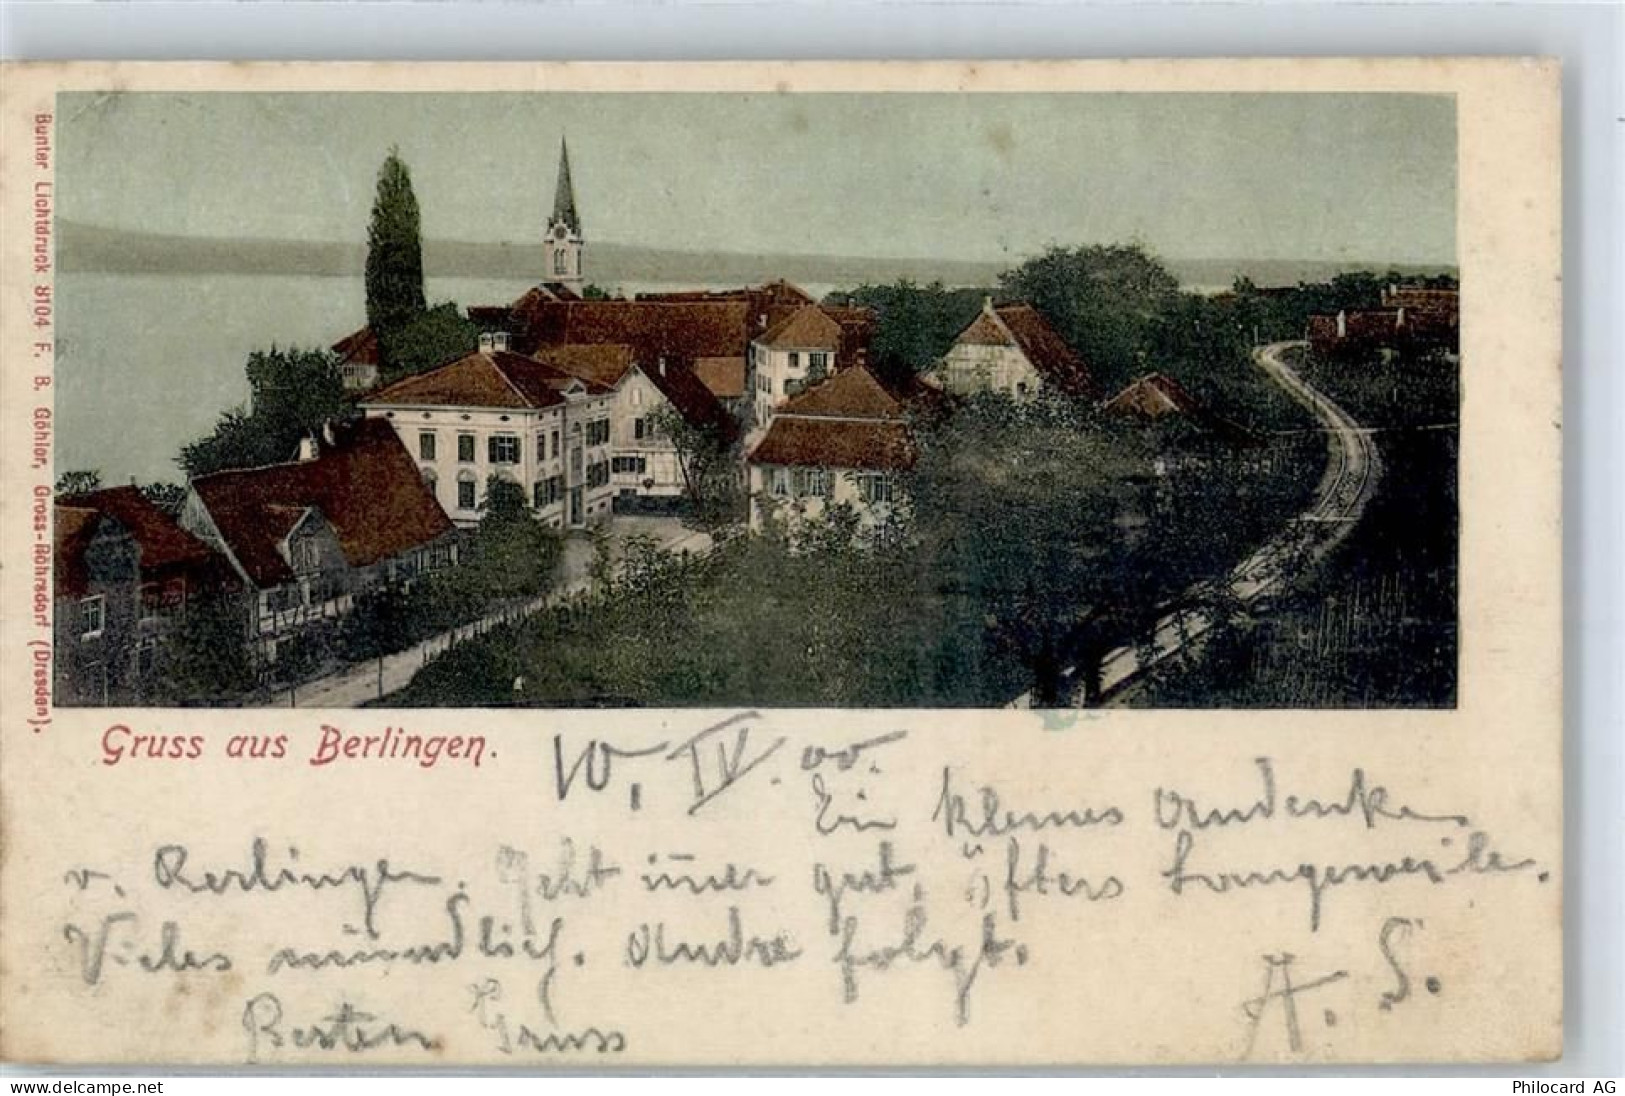 Bunter Lichtdruck 8104 F. B. Göhler, Gross-Röhrsdorf (Dresden).
Gruss aus Berlingen.
10. IV. 00.
Ein kleines Andenken
v. Berlingen. Geht imer gut, öfters Langeweile.
Vieles mündlich. Andre folgt.
A. S.
Besten Gruss
delcampe.net
Philocard AG